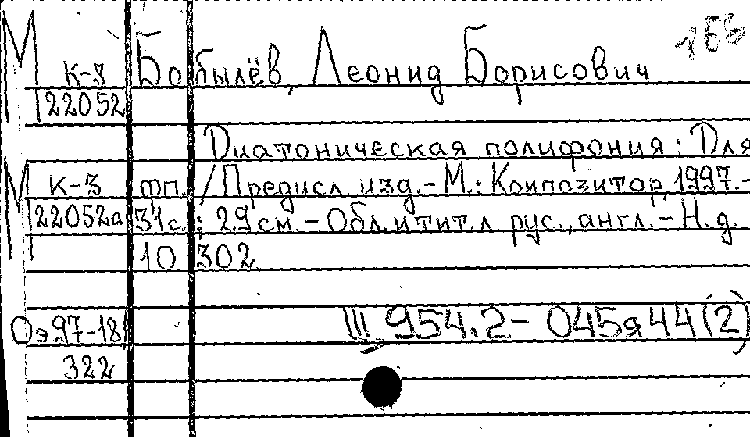 М
К-3 Бобылёв, Леонид Борисович
22052
Диатоническая полифония: Для
М К-3 фп. / Предисл изд.- М.: Композитор, 1997.-
22052а 34с.; 29 см.- Обл. и тит. л рус., англ.- Н.д.
10 302
Оэ97-18/ III 954.2- 045я44(2)
322